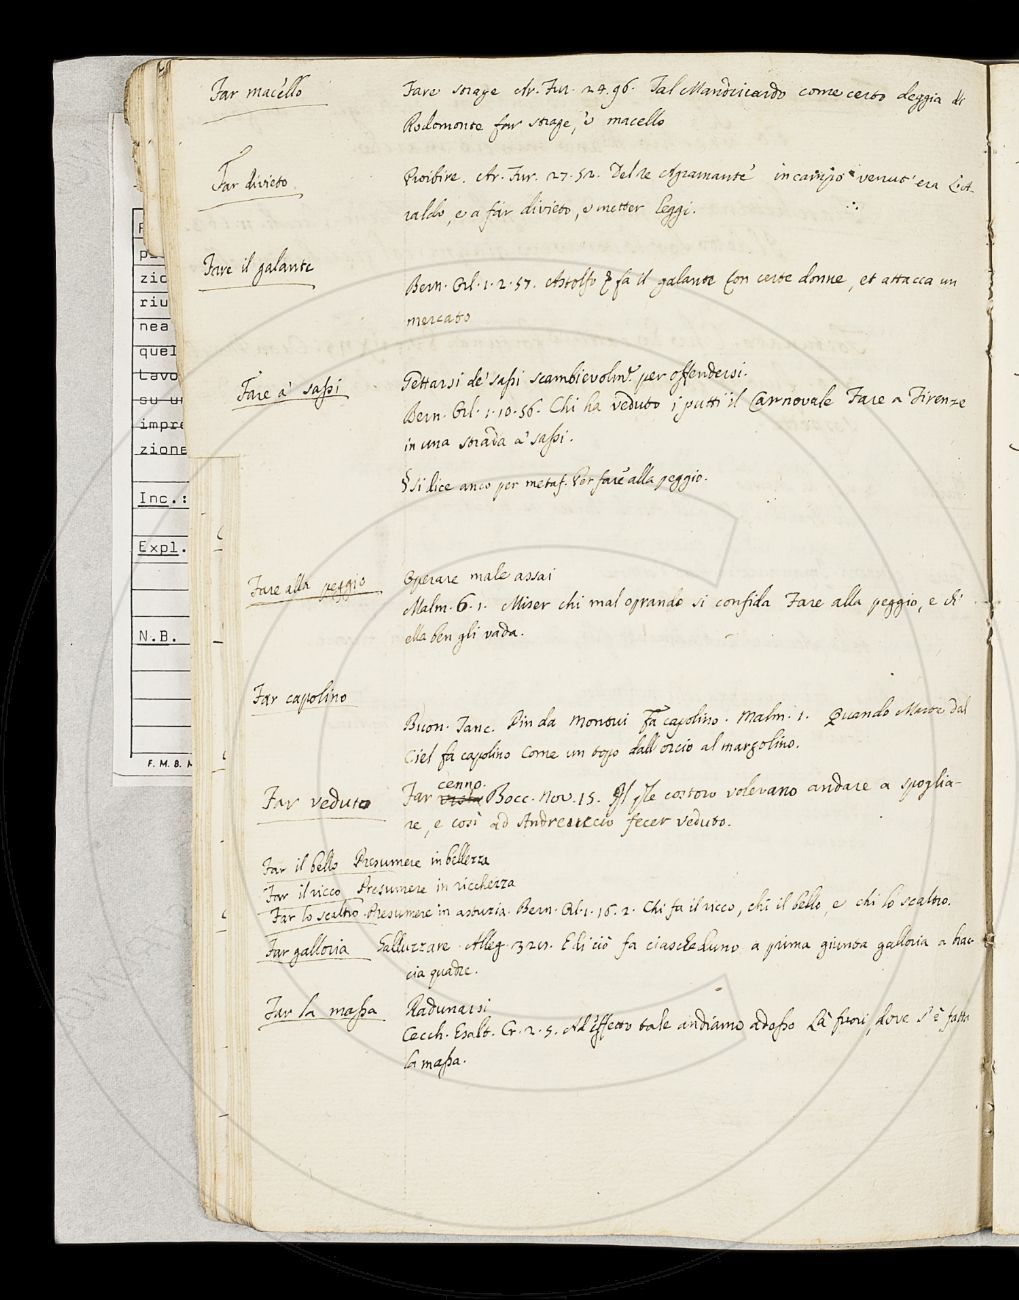 Far macello
Fare strage Ar. Fur. 24. 96. Tal Mandricardo come certo deggia di
Rodomonte far strage, e macello
Far divieto
Proibire. Ar. Fur. 27. 52. Del re Agramante in campo venut' era L'A-
raldo, e a far divieto, e metter leggi.
Fare il galante
Bern. Orl. 1. 2. 57. Astolfo fa il galante con certe donne, et attacca un
mercato
Fare a' sassi
Gettarsi de' sassi scambievolm.e per offendersi.
Bern. Orl. 1. 10. 56. Chi ha veduto i putti il Carnovale Fare a Firenze
in una strada a' sassi.
§ Si dice anco per metaf. Per fare alla peggio.
Fare alla peggio
Operare male assai
Malm. 6. 1. Miser chi mal oprando si confida Fare alla peggio, e ch'
ella ben gli vada.
Far capolino
Buon. Tanc. Pin da fa capolino. Malm. 1. Quando Marte dal
Ciel fa capolino Come un topo dall'orcio al marzolino.
Far veduto
Far cenno. Bocc. Nov. 15. costoro volevano andare a spoglia-
re, e così ad Andreuccio fecer veduto.
Far il bello Presumere in bellezza
Far il ricco Presumere in ricchezza
Far lo scaltro. Presumere in astuzia. Bern. Orl. 1. 16. 2. Chi fa il ricco, chi il bello, e chi lo scaltro.
Far galloria Galluzzare. Alleg. E di ciò fa ciascheduno a prima giunta galloria a
cia quadre.
Far la massa
Radunarsi
Cecch. Esalt. Cr. 2. 5. tale andiamo adesso Là fuori, dove s'è fatta
la massa.
zic
riu
nea
quel
Lavo
su u
impre
zione
Inc.:
Expl.
N.B.
F. M. B. M